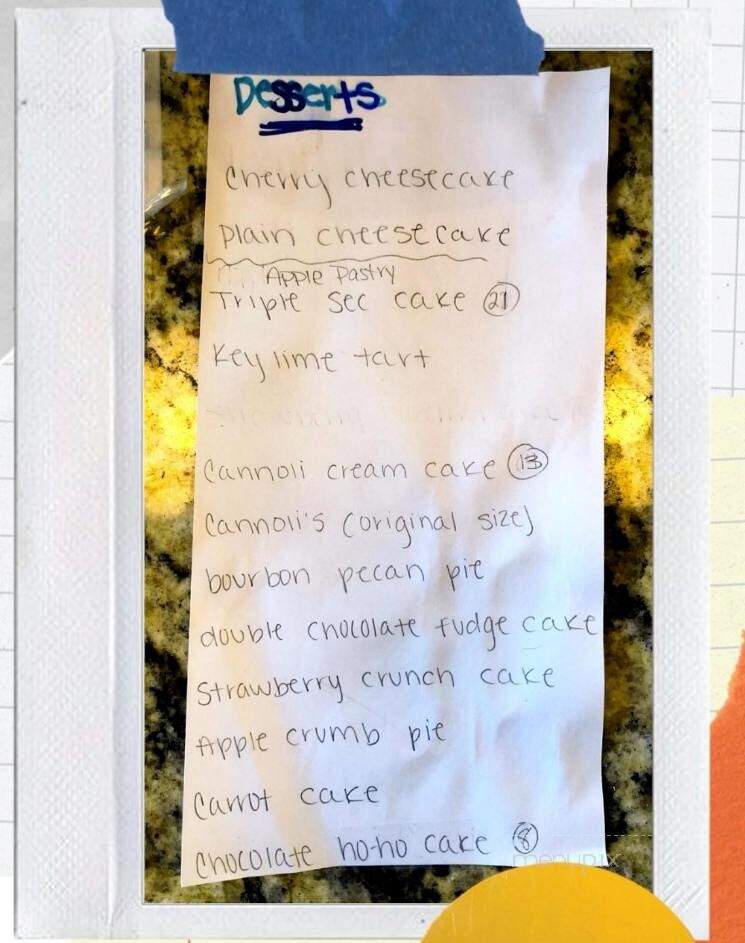 Desserts
Cherry cheesecake
Plain cheesecake
Apple Pastry
Triple Sec cake 21
Key lime tart
Cannoli cream cake 13
Cannoli's (original size)
bourbon pecan pie
double chocolate fudge cake
Strawberry crunch cake
Apple crumb pie
Carrot cake
Chocolate ho-ho cake 8
menupix